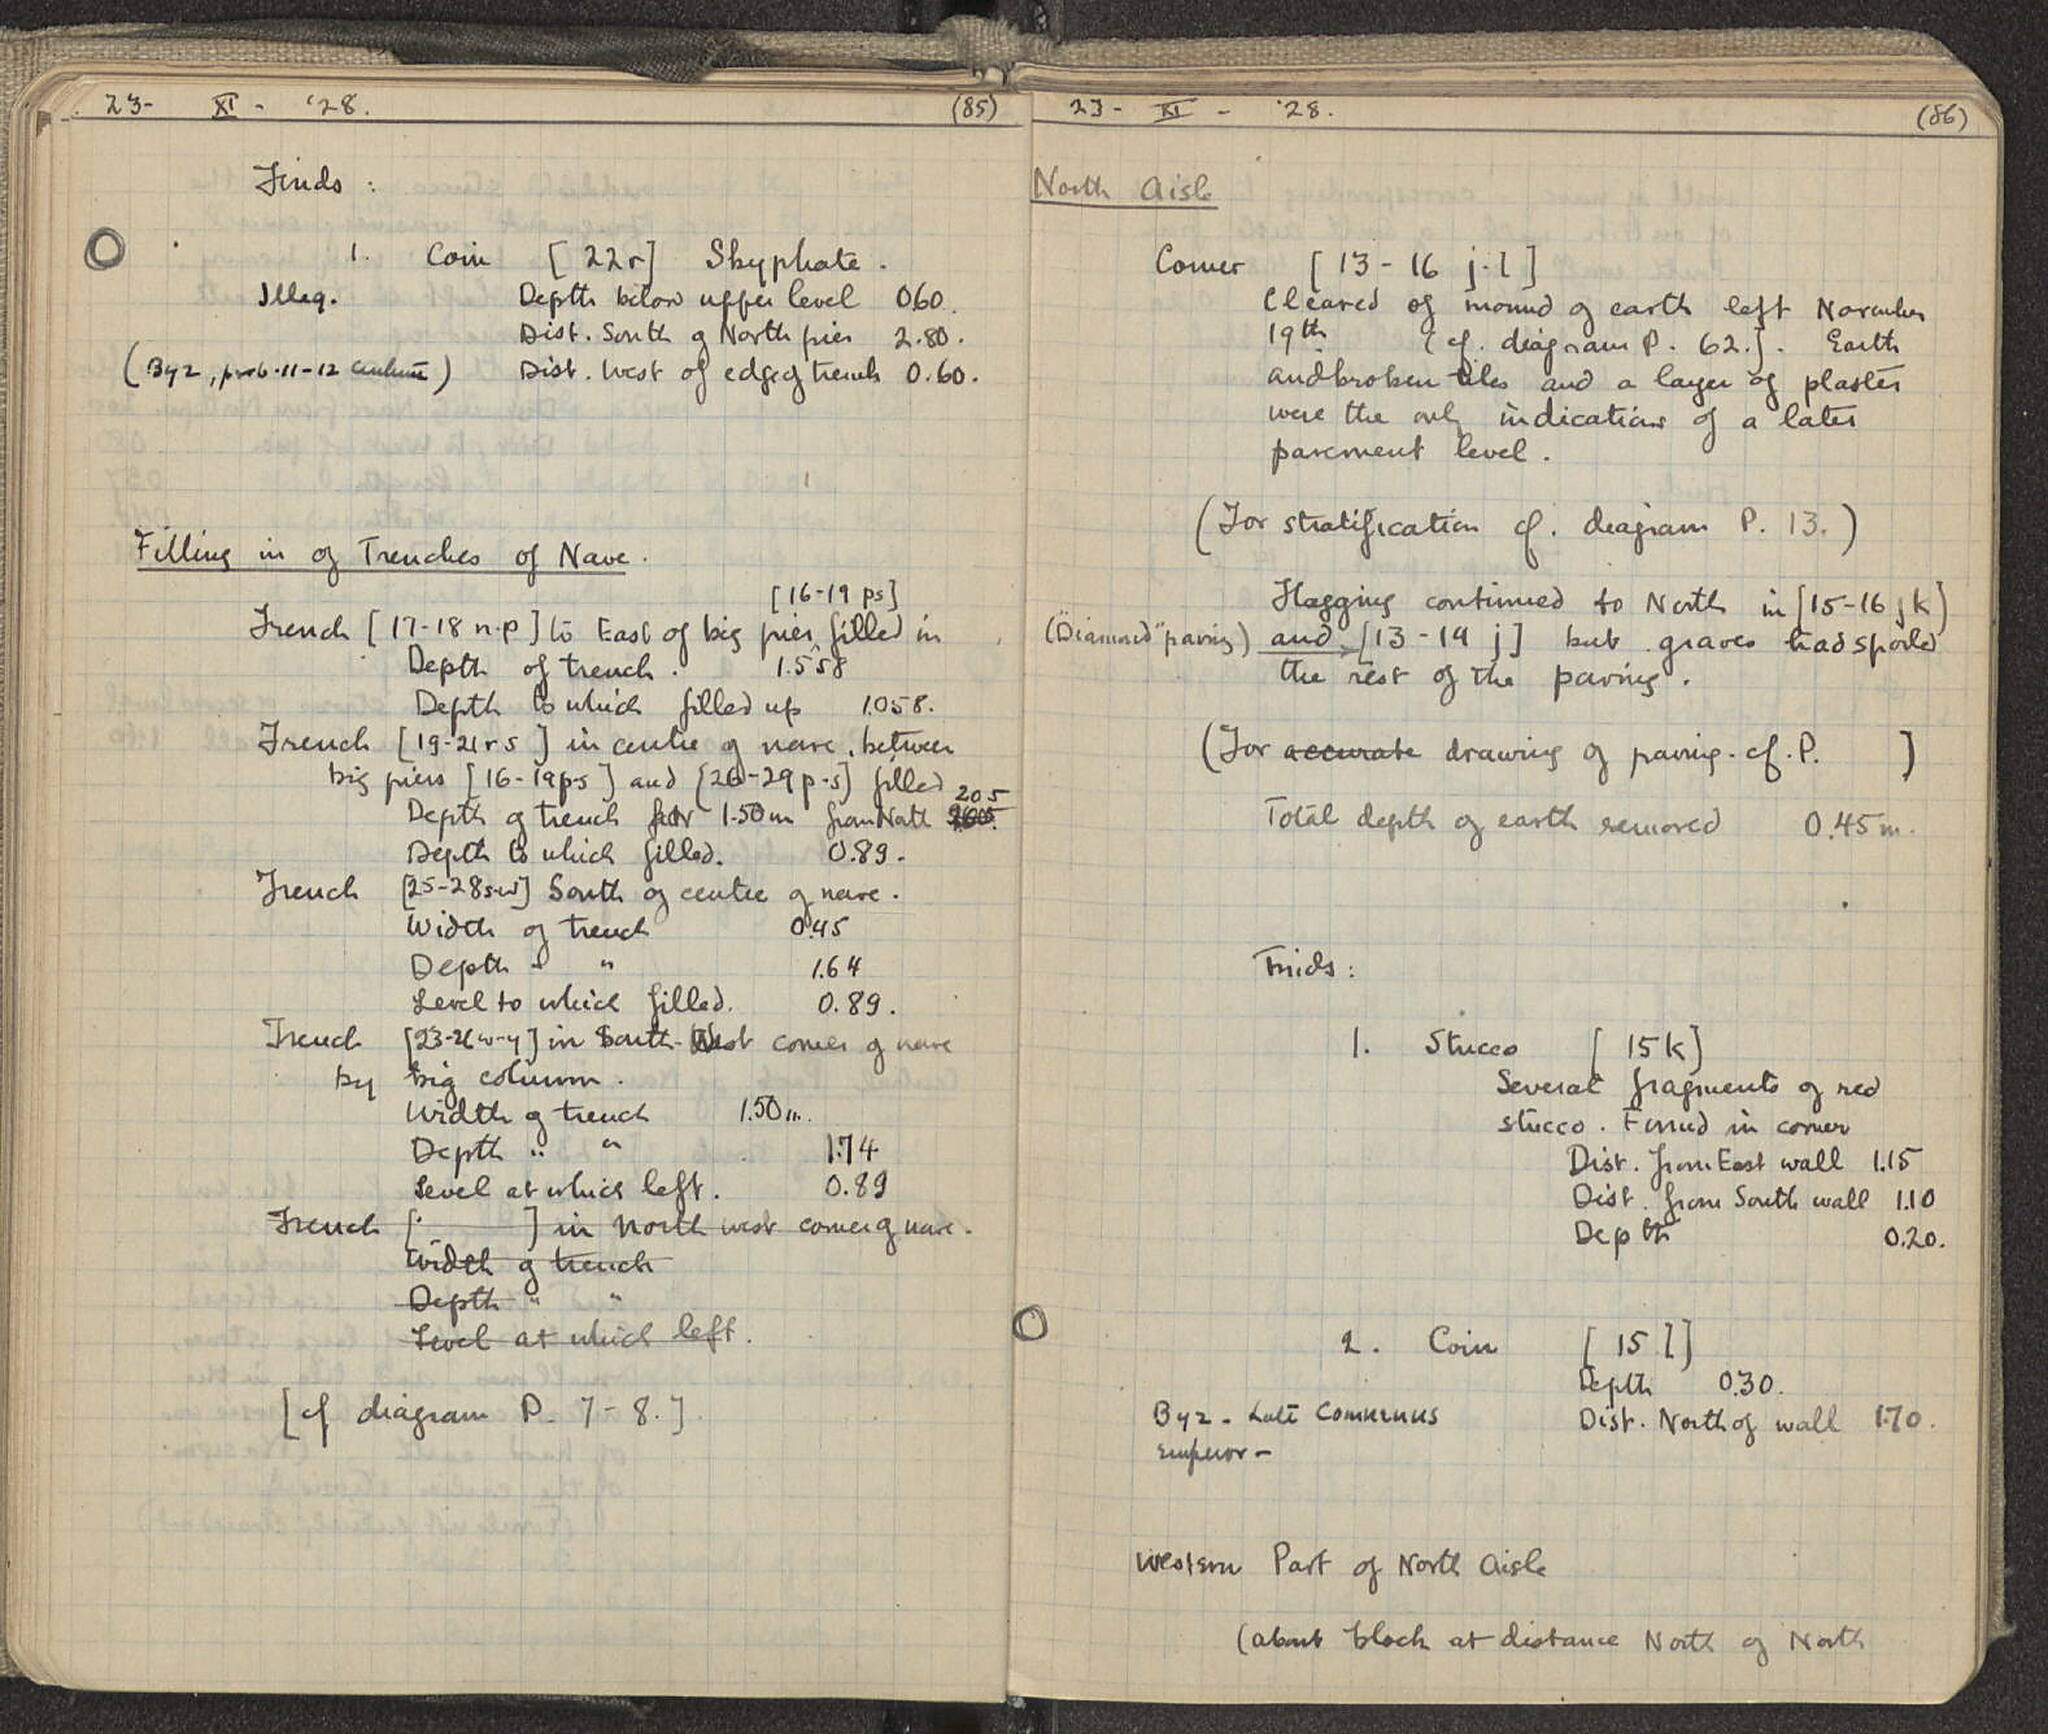 23- XI - '28. (85)
Finds :
1. Coin [22r] Skyphate.
Illeg. Depth below upper level 0.60.
Dist. South of North pier 2.80.
(Byz, prob. 11-12 century) Dist. West of edge of trench 0.60.
Filling in of Trenches of Nave.
[16-19 ps]
Trench [17-18 n-p] to East of big pier ^ filled in
Depth of trench. 1.558
Depth to which filled up 1.058.
Trench [19-21 r s] in centre of nave, between
big piers [16-19 p-s] and [26-29 p-s] filled
Depth of trench for 1.50m from North 205
Depth to which filled. 0.89.
Trench [25-28 s-w] South of centre of nave.
Width of trench 0.45
Depth " " 1.64
Level to which filled. 0.89.
Trench [23-26 w-y] in South-West corner of nave
by big column.
Width of trench 1.50m.
Depth " " 1.74
Level at which left. 0.89
Trench [ ] in North west corner of nave.
Width of trench
Depth " "
Level at which left.
[cf diagram P. 7-8.]
23- XI - '28. (86)
North Aisle
Corner [13-16 j-l]
Cleared of mound of earth left November
19th (cf. diagram P. 62.). Earth
and broken tiles and a layer of plaster
were the only indications of a later
pavement level.
(For stratification cf. diagram P. 13.)
Flagging continued to North in [15-16 j k]
("Diamond" paving) and [13-14 j] but graves had spoiled
the rest of the paving.
(For accurate drawing of paving. cf. P. )
Total depth of earth removed 0.45m.
Finds:
1. Stucco [15k]
Several fragments of red
stucco. Found in corner
Dist. from East wall 1.15
Dist. from South wall 1.10
Depth 0.20.
2. Coin [15 l]
Depth 0.30.
Byz - Late Comnenus Dist. North of wall 1.70.
Emperor -
Western Part of North Aisle
(about block at distance North of North